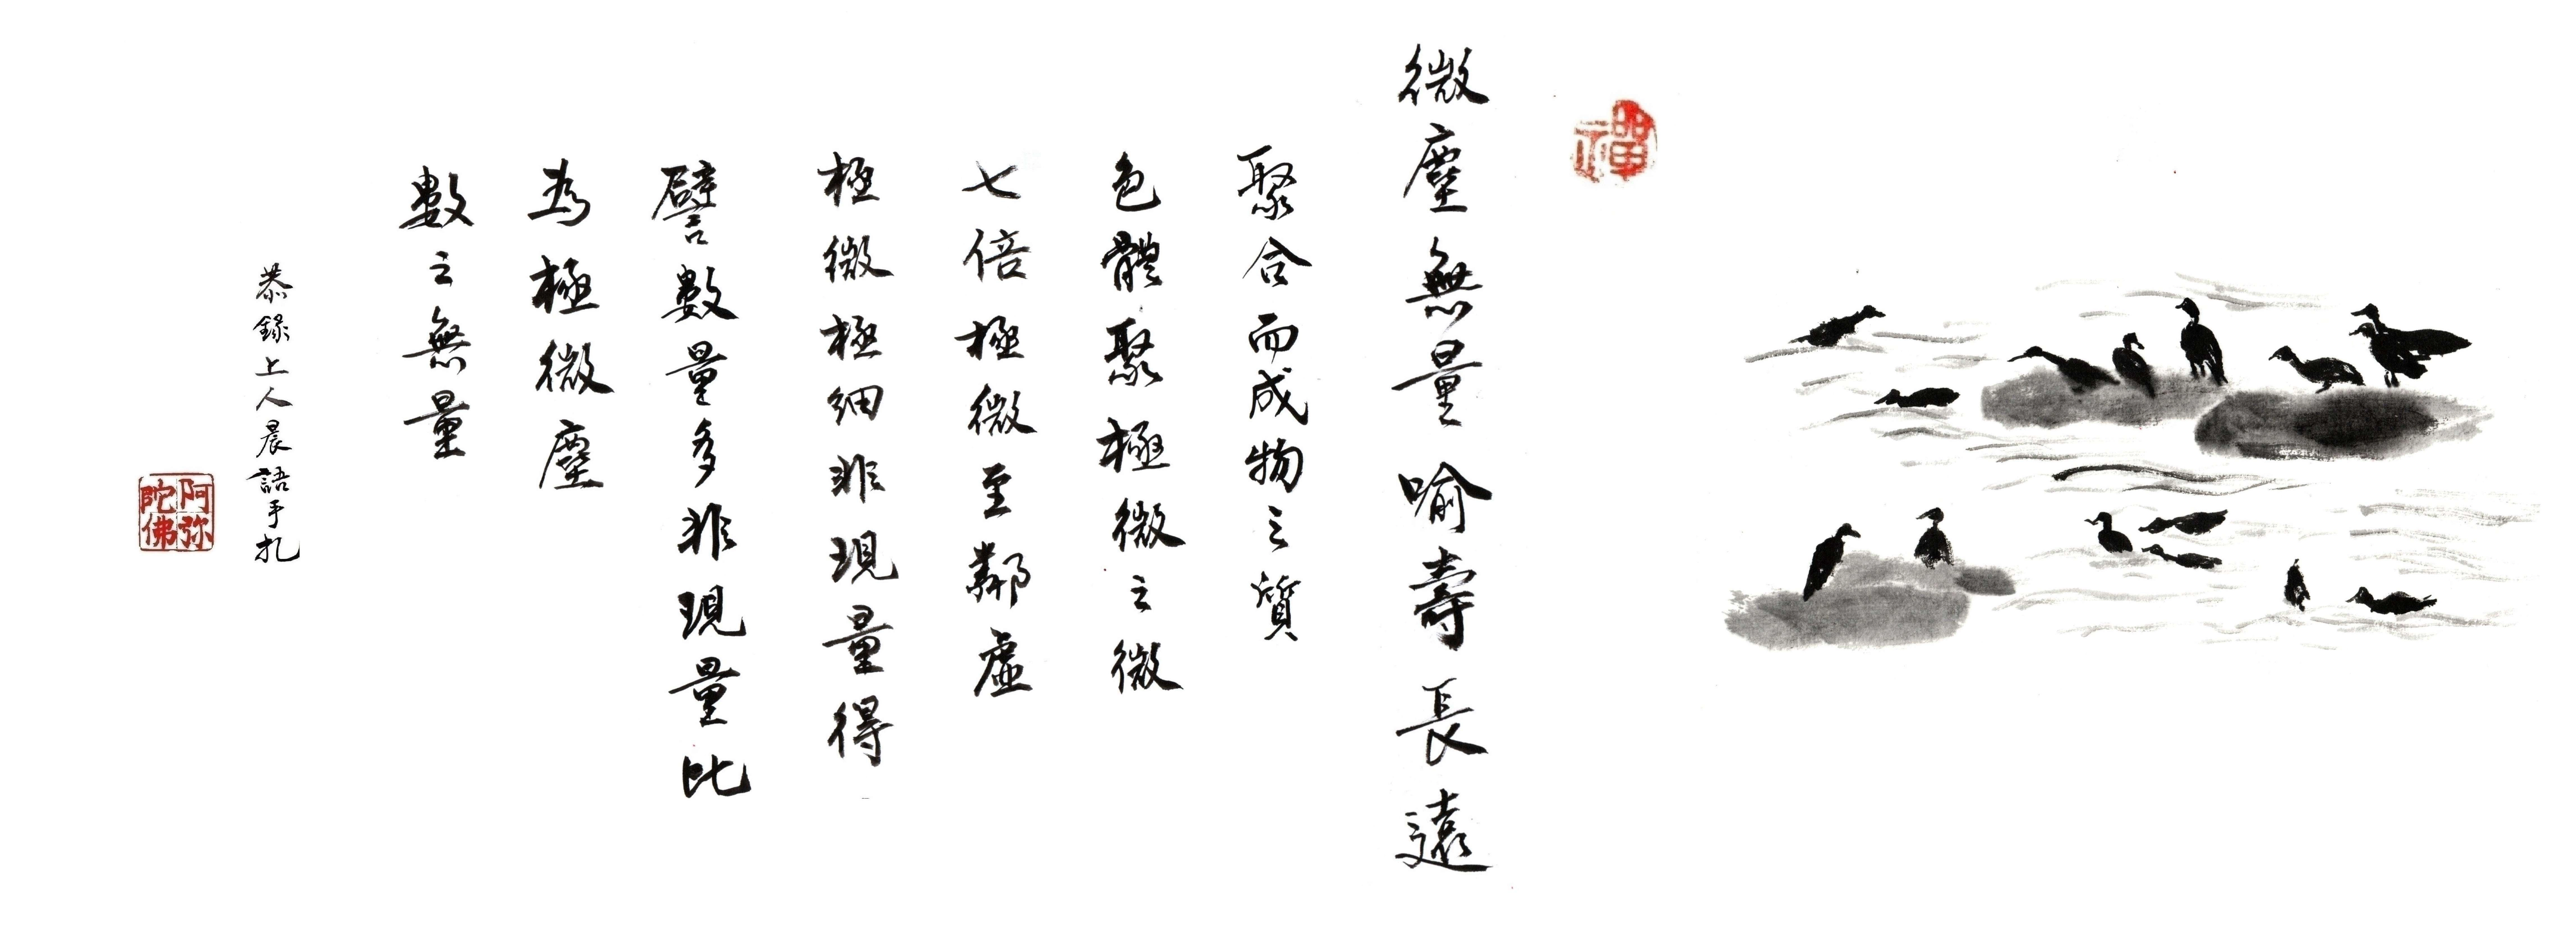 禪
微塵無量喻壽長遠
聚合而成物之質
色體聚極微之微
七倍極微至鄰虛
極微極細非現量得
譬數量多非現量比
為極微塵
數之無量
恭錄上人晨語手札
阿弥陀佛